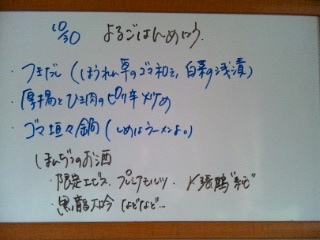 10/30 よるごはんめにう
・つきだし(ほうれん草のゴマ和え、白菜の浅漬)
・厚揚とひき肉のピリ辛炒め
・ゴマ坦々鍋(しめはラーメンよ。)
ほんじつのお酒
・限定エビス、プレミアムモルツ、〆張鶴"純"
・黒龍大吟 などなど...